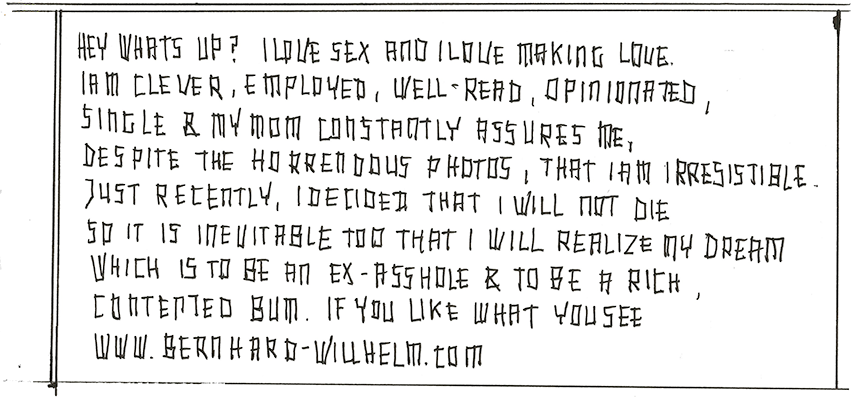 HEY WHATS UP? I LOVE SEX AND I LOVE MAKING LOVE.
I AM CLEVER, EMPLOYED, WELL-READ, OPINIONATED,
SINGLE & MY MOM CONSTANTLY ASSURES ME,
DESPITE THE HORRENDOUS PHOTOS, THAT I AM IRRESISTIBLE.
JUST RECENTLY, I DECIDED THAT I WILL NOT DIE
SO IT IS INEVITABLE TOO THAT I WILL REALIZE MY DREAM
WHICH IS TO BE AN EX-ASSHOLE & TO BE A RICH,
CONTENTED BUM. IF YOU LIKE WHAT YOU SEE
WWW.BERNHARD-WILLHELM.COM